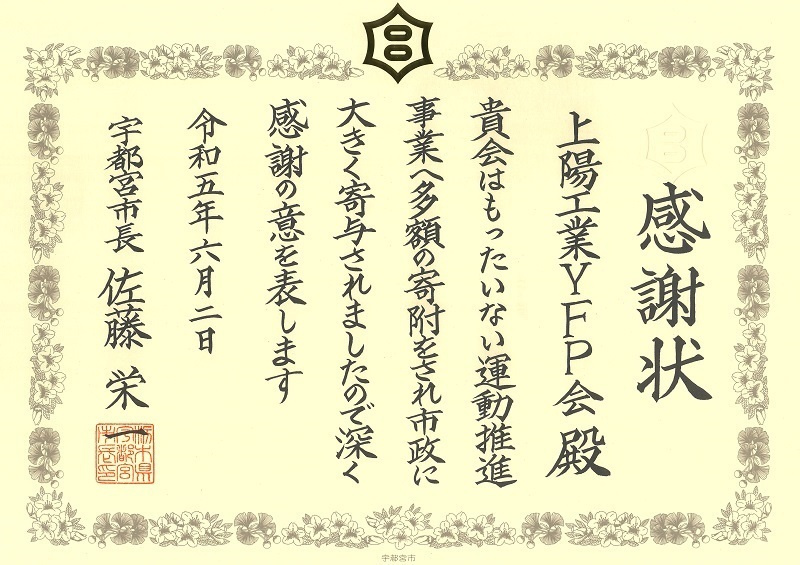 感謝状
上陽工業YFP会殿
貴会はもったいない運動推進
事業へ多額の寄附をされ市政に
大きく寄与されましたので深く
感謝の意を表します
令和五年六月二日
宇都宮市長 佐藤栄一
栃木県
宇都宮
市長印
宇都宮市